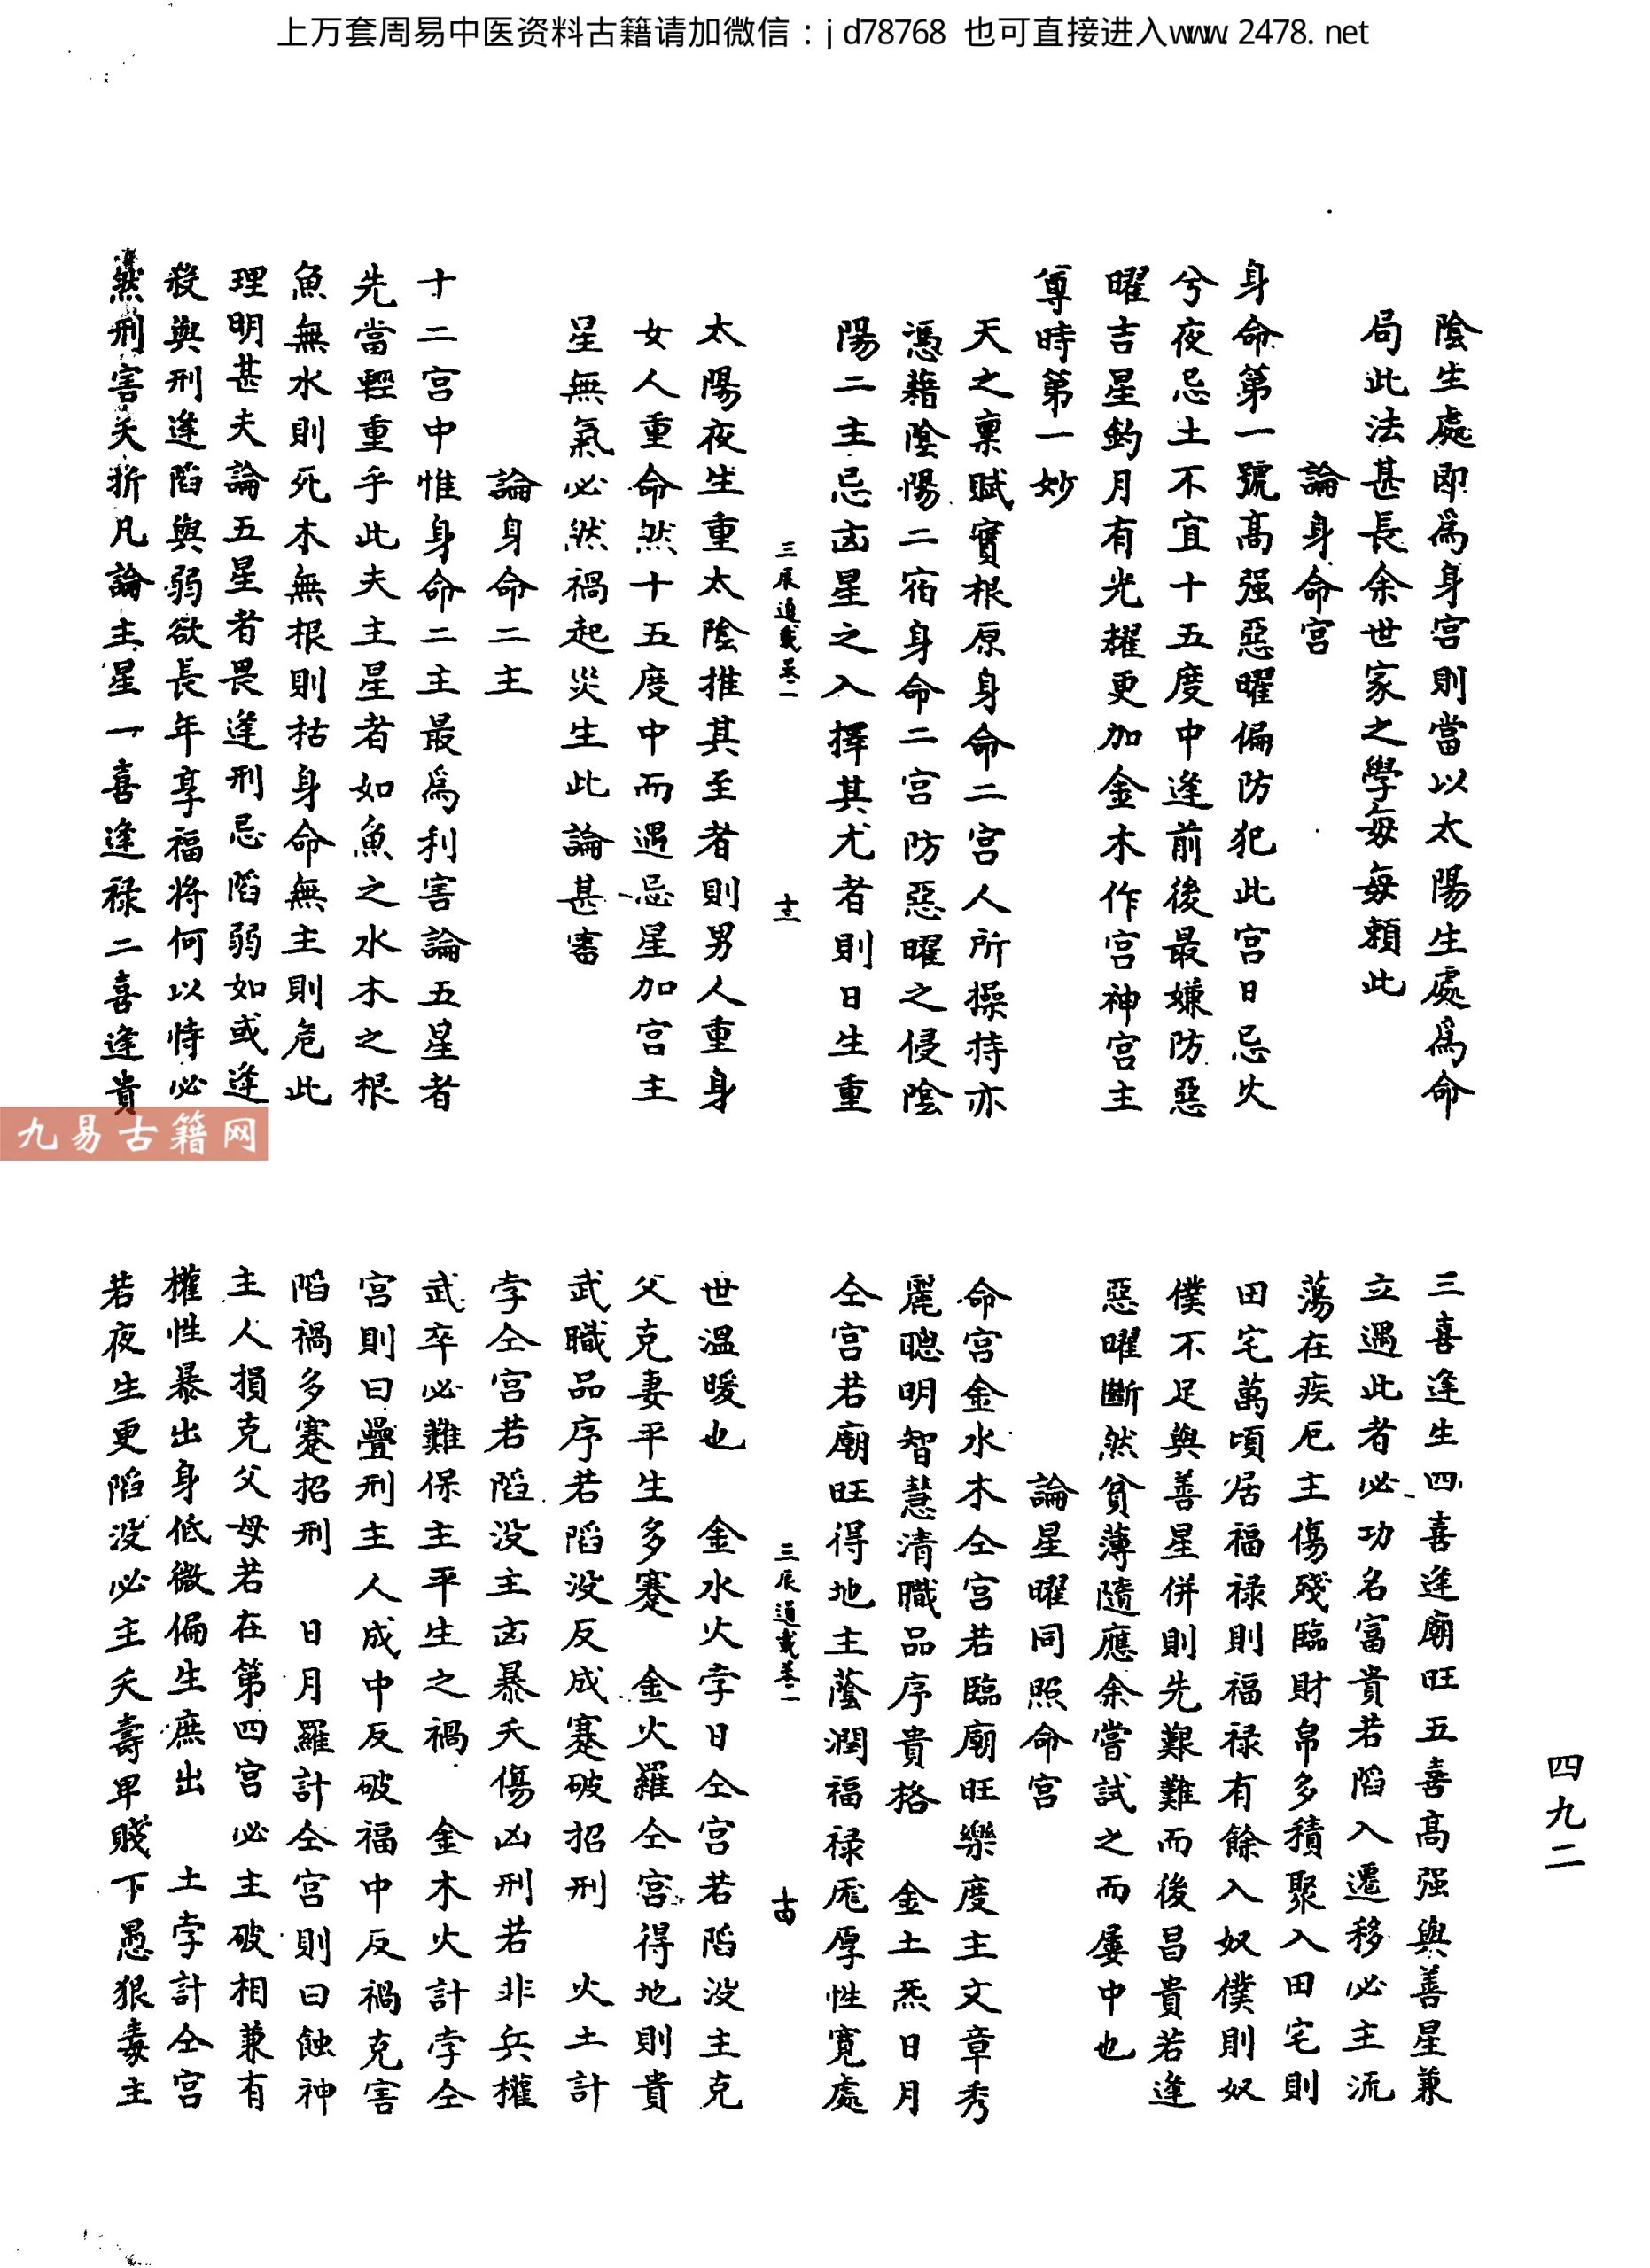 上万套周易中医资料古籍请加微信：jd78768 也可直接进入www.2478.net
陰生處即爲身宮則當以太陽生處爲命
局此法甚長余世家之學每每賴此
論身命宮
身命第一號高强惡曜偏防犯此宮日忌火
兮夜忌土不宜十五度中逢前後最嫌防惡
曜吉星釣月有光耀更加金木作宮神宮主
尊時第一妙
天之稟賦實根原身命二宮人所操持亦
憑藉陰陽二宿身命二宮防惡曜之侵陰
陽二主忌凶星之入擇其尤者則日生重
三辰通載卷二
十三
太陽夜生重太陰推其至者則男人重身
女人重命然十五度中而遇忌星加宮主
星無氣必然禍起災生此論甚審
論身命二主
十二宮中惟身命二主最爲利害論五星者
先當輕重乎此夫主星者如魚之水木之根
魚無水則死木無根則枯身命無主則危此
理明甚夫論五星者畏逢刑忌陷弱如或逢
殺與刑逢陷與弱欲長年享福將何以恃必
然刑害夭折凡論主星一喜逢祿二喜逢貴
九易古籍网
三喜逢生四喜逢廟旺五喜高强與善星兼
立遇此者必功名富貴若陷入遷移必主流
蕩在疾厄主傷殘臨財帛多積聚入田宅則
田宅萬頃居福祿則福祿有餘入奴僕則奴
僕不足與善星併則先艱難而後昌貴若逢
惡曜斷然貧薄隨應余嘗試之而屢中也
論星曜同照命宮
命宮金水木仝宮若臨廟旺樂度主文章秀
麗聰明智慧清職品序貴格 金土炁日月
仝宮若廟旺得地主蔭潤福祿厖厚性寬處
三辰通載卷二
十四
世溫暖也 金水火孛日仝宮若陷没主克
父克妻平生多蹇 金火羅仝宮得地則貴
武職品序若陷没反成蹇破招刑 火土計
孛仝宮若陷没主凶暴夭傷凶刑若非兵權
武卒必難保主平生之禍 金木火計孛仝
宮則曰疊刑主人成中反破福中反禍克害
陷禍多蹇招刑 日月羅計仝宮則曰蝕神
主人損克父母若在第四宮必主破相兼有
權性暴出身低微偏生庶出 土孛計仝宮
若夜生更陷没必主夭壽卑賤下愚狠毒主
四九二